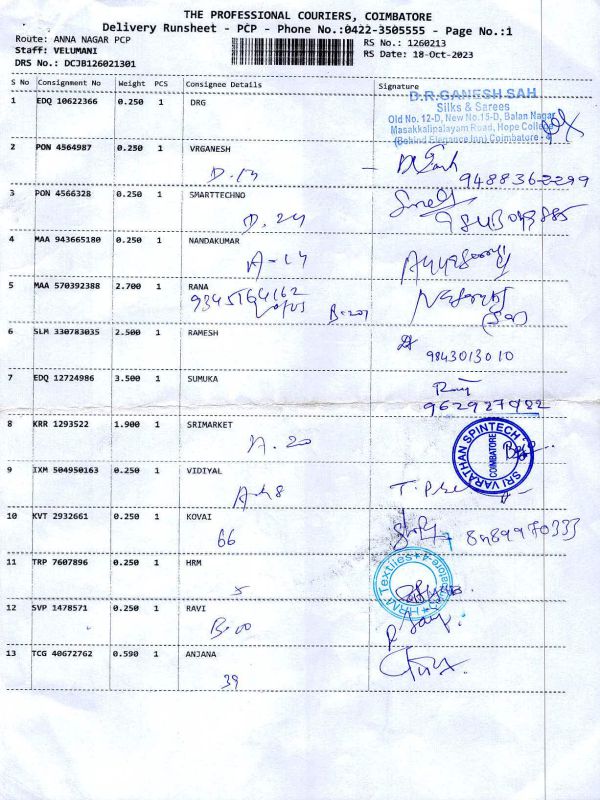 THE PROFESSIONAL COURIERS, COIMBATORE
Delivery Runsheet - PCP - Phone No.:0422-3505555 - Page No.:1
Route: ANNA NAGAR PCP RS No.: 1260213
Staff: VELUMANI RS Date: 18-Oct-2023
DRS No.: DCJB126021301
S No Consignment No Weight PCS Consignee Details Signature
1 EDQ 10622366 0.250 1 DRG
D.R.GANESH SAH
Silks & Sarees
Old No. 12-D, New No.15-D, Balan Nagar
Masakkalipalayam Road, Hope College
(Behind Elegance Inn) Coimbatore - 4
2 PON 4564987 0.250 1 VRGANESH
D.13 9488362299
3 PON 4566328 0.250 1 SMARTTECHNO
D.24
4 MAA 943665180 0.250 1 NANDAKUMAR
A-14
5 MAA 570392388 2.700 1 RANA
B-201
6 SLM 330783035 2.500 1 RAMESH
9843013010
7 EDQ 12724986 3.500 1 SUMUKA
9629927982
8 KRR 1293522 1.900 1 SRIMARKET
A.20
SRI VARATHAN SPINTECH
COIMBATORE
9 IXM 504950163 0.250 1 VIDIYAL
10 KVT 2932661 0.250 1 KOVAI
66
11 TRP 7607896 0.250 1 HRM
5
HRM Textiles
12 SVP 1478571 0.250 1 RAVI
B.00
13 TCG 40672762 0.590 1 ANJANA
39